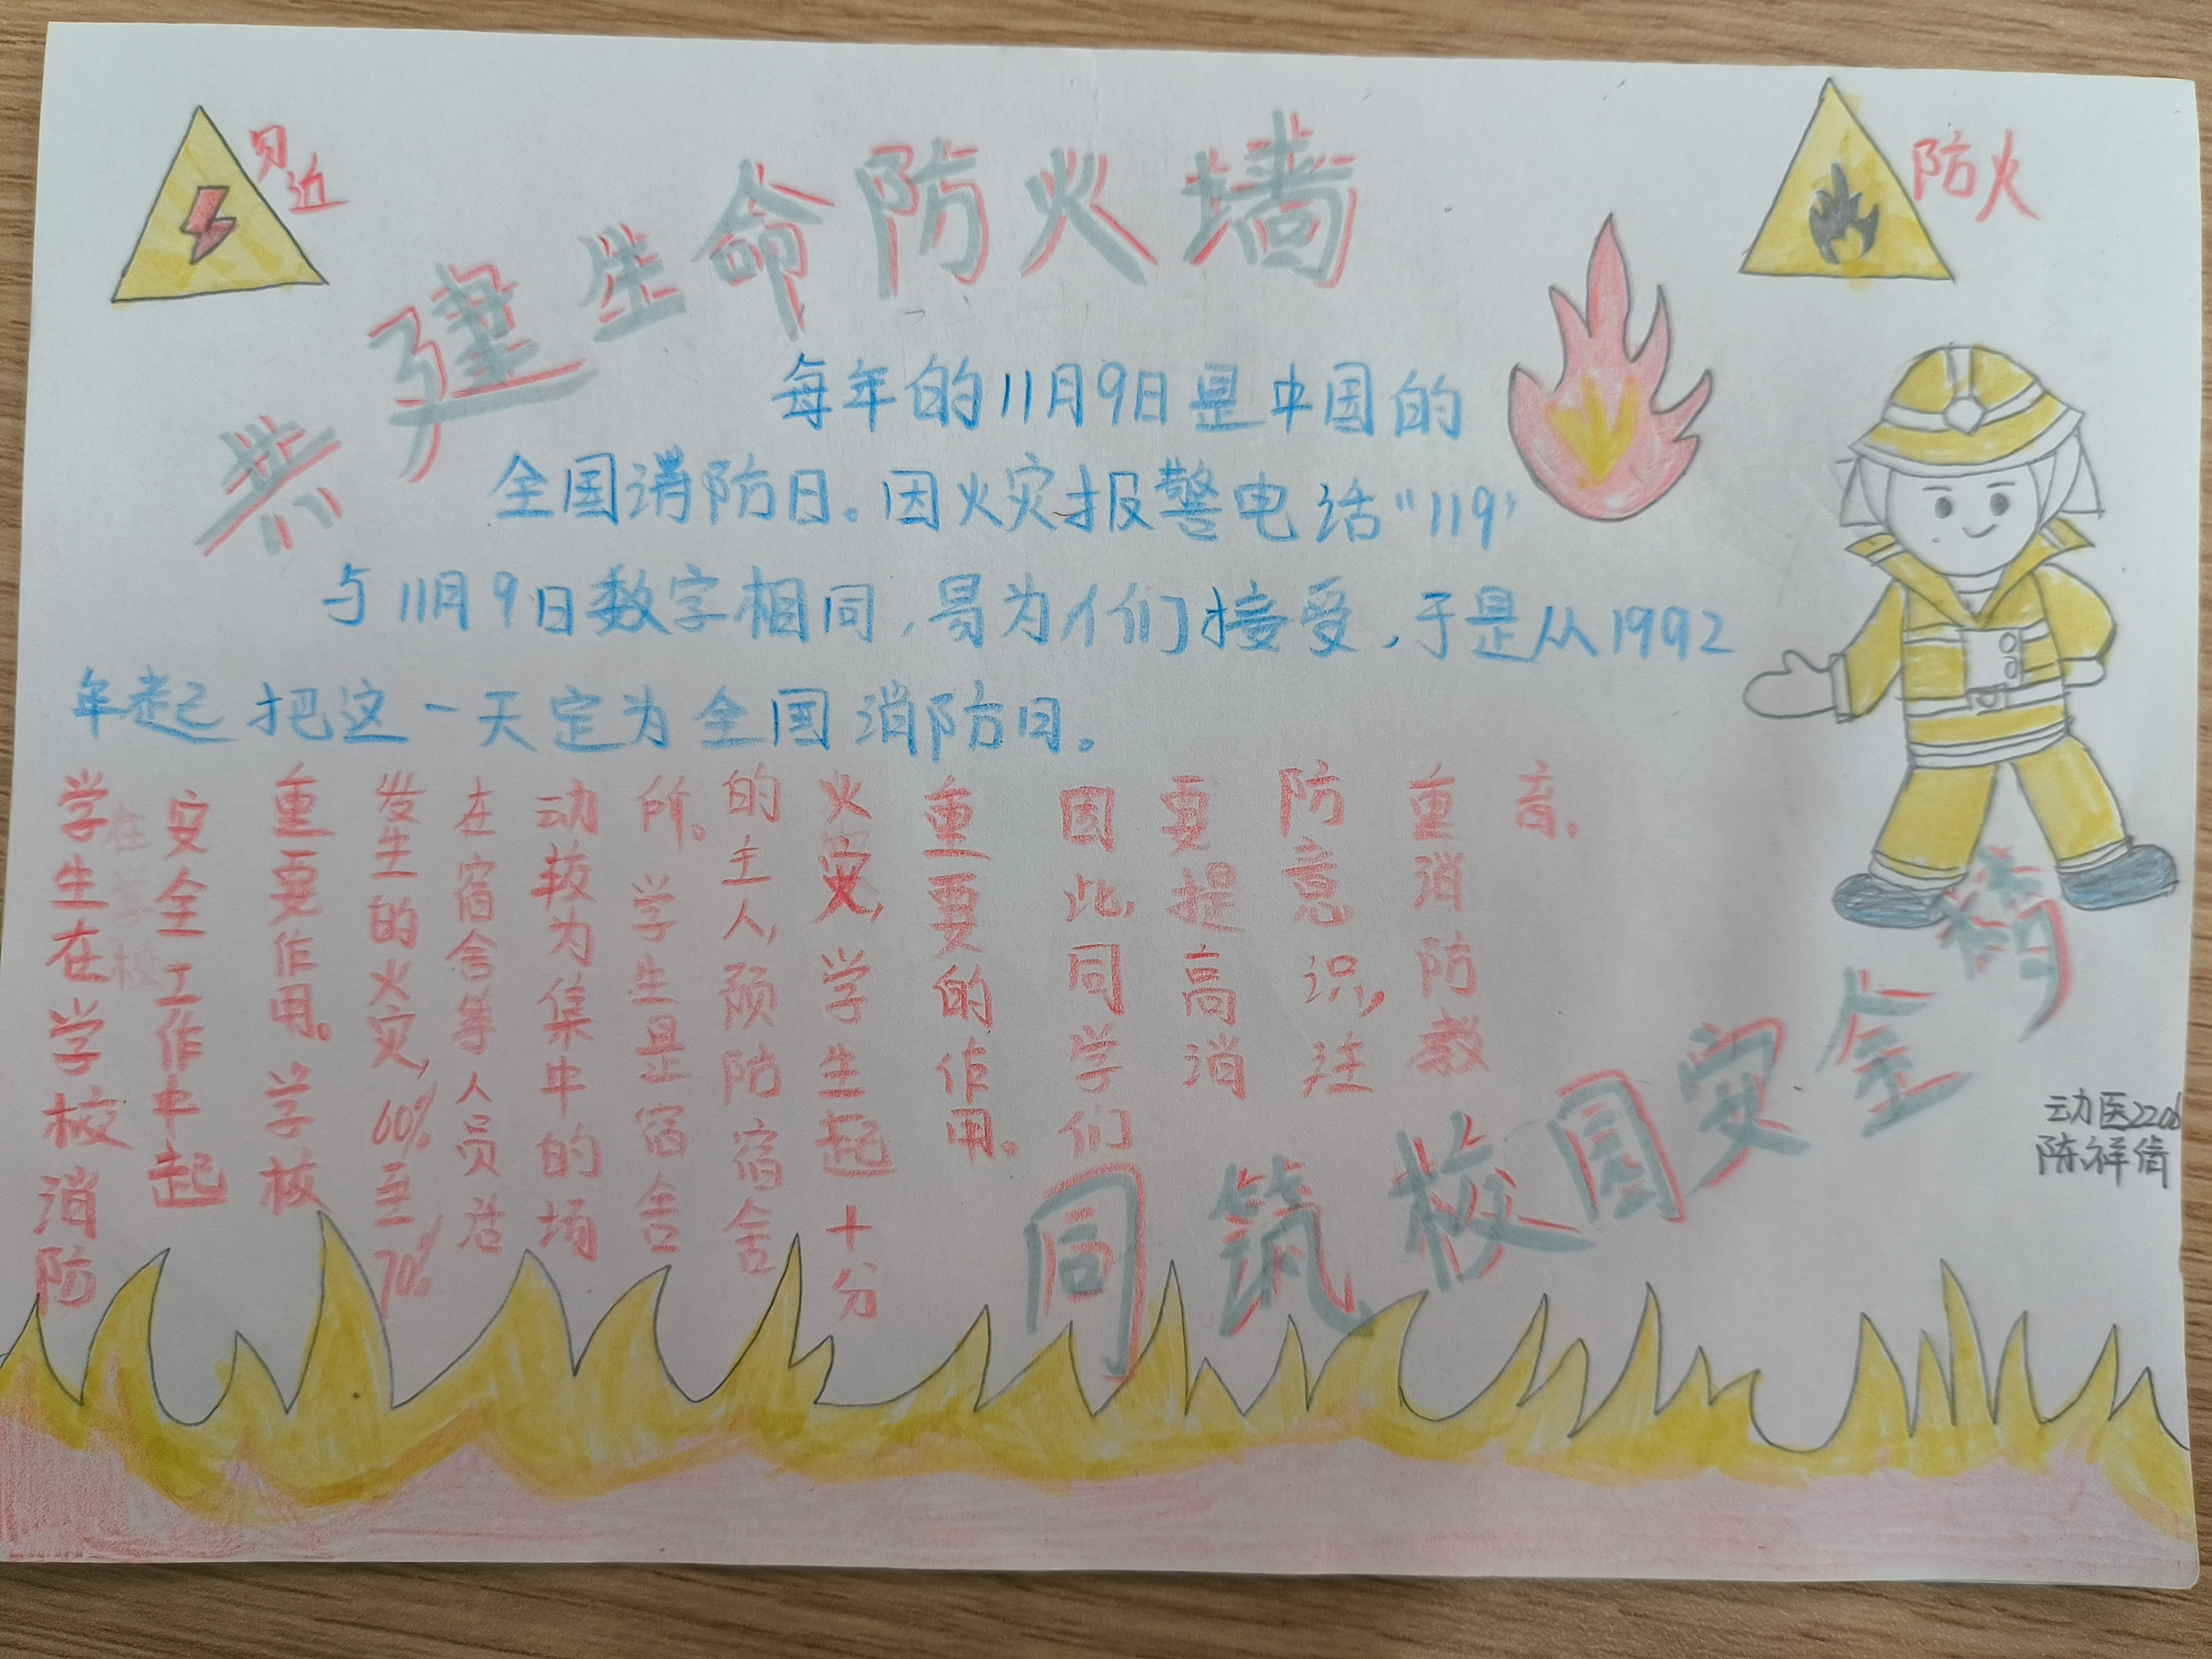 共建生命防火墙
防火
每年的11月9日是中国的
全国消防日。因火灾报警电话“119”
与11月9日数字相同，易为人们接受，于是从1992
年起把这一天定为全国消防日。
学生在学校消防
安全工作中起
重要作用。学校
发生的火灾，60%至70%
在宿舍等人员活
动较为集中的场
所。学生是宿舍
的主人，预防宿舍
火灾，学生起十分
重要的作用。
因此，同学们
要提高消
防意识，注
重消防教
育。
同筑校园安全
动医220
陈祥倩